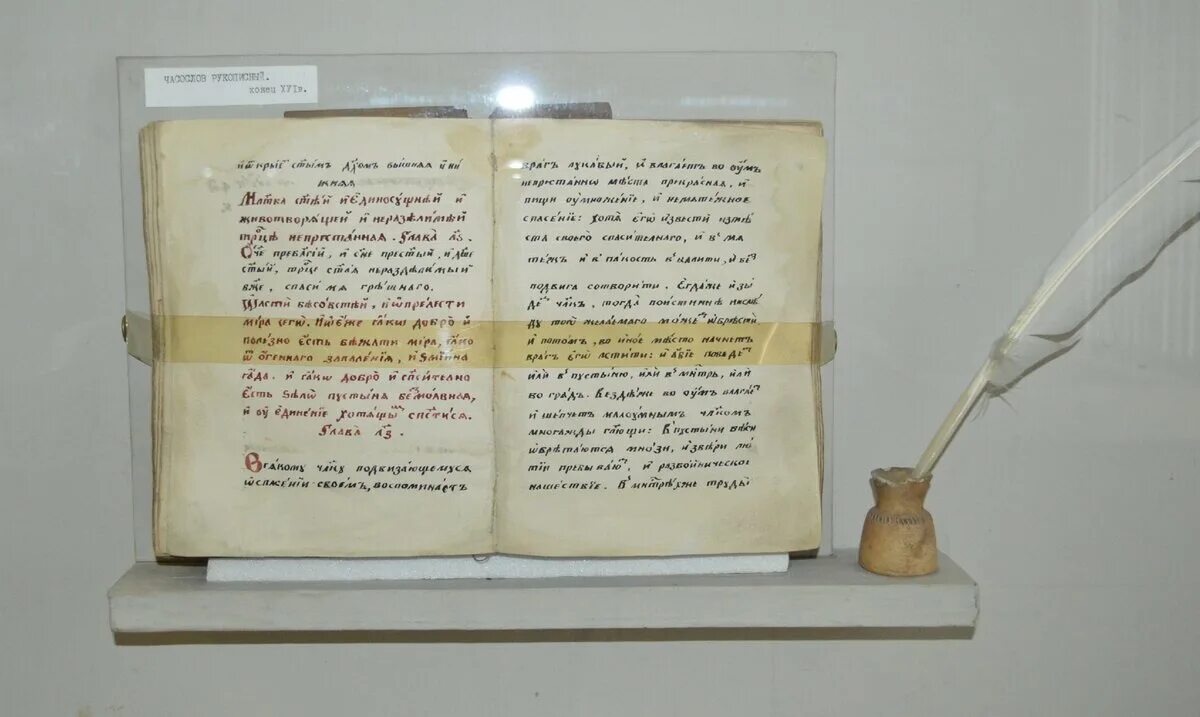 ЧАСОСЛОВ РУКОПИСНЫЙ.
конец XVIв.
дх҃омъ вышняя и ни
жняя
Мл҃тва ст҃ѣй и единосущнѣй и
животворящей и нераздѣлимѣй
трⷪ҇цѣ непрестанная. Глава л҃з.
Ѻч҃е пребл҃гій, и сн҃е престы҃й, и дш҃е
ст҃ый, трⷪ҇це ст҃ая нераздѣлимый
бж҃е, спаси мя грѣшнаго.
бѣсовстѣй, и ѿ прелести
мира сего. добро и
полезно есть бѣжати мира, ꙗко
ѿ огненнаго запаленїя, и змиина
гада. и ꙗко добро и сп҃сительно
есть ѕѣлѡ пустыня безмолвная,
и уединенїе хотящымъ сп҃стися.
Глава л҃з.
Всякому чл҃ку подвизающемуся
ѡ спасенїи своемъ, воспоминаетъ
врагъ лукавый, и влагаетъ во умъ
непрестанно мѣста прекрасная, и
пищи умноженїе, и нематежное
спасенїе: хотя его извести изъ мѣ
ста своего спасителнаго, и в мя
тежъ и в пакость вдати, и без
подвига сотворити. Егда же изы
детъ чл҃къ, тогда поистиннѣ
ду того желаемаго можетъ ѡбрѣсти.
и потомъ, во иное мѣсто начнетъ
врагъ его лстити: и абїе поведетъ
или в пустыню, или в мн҃трь, или
во градъ. Вездѣ же во умъ влагаетъ
и шепчетъ малоумнымъ чл҃комъ
многажды гл҃ющи: В пустыни
ѡбрѣтаются мнози, и звѣри лю
тїи пребываютъ, и разбойническое
нашествїе. В мн҃трѣхъ же труды